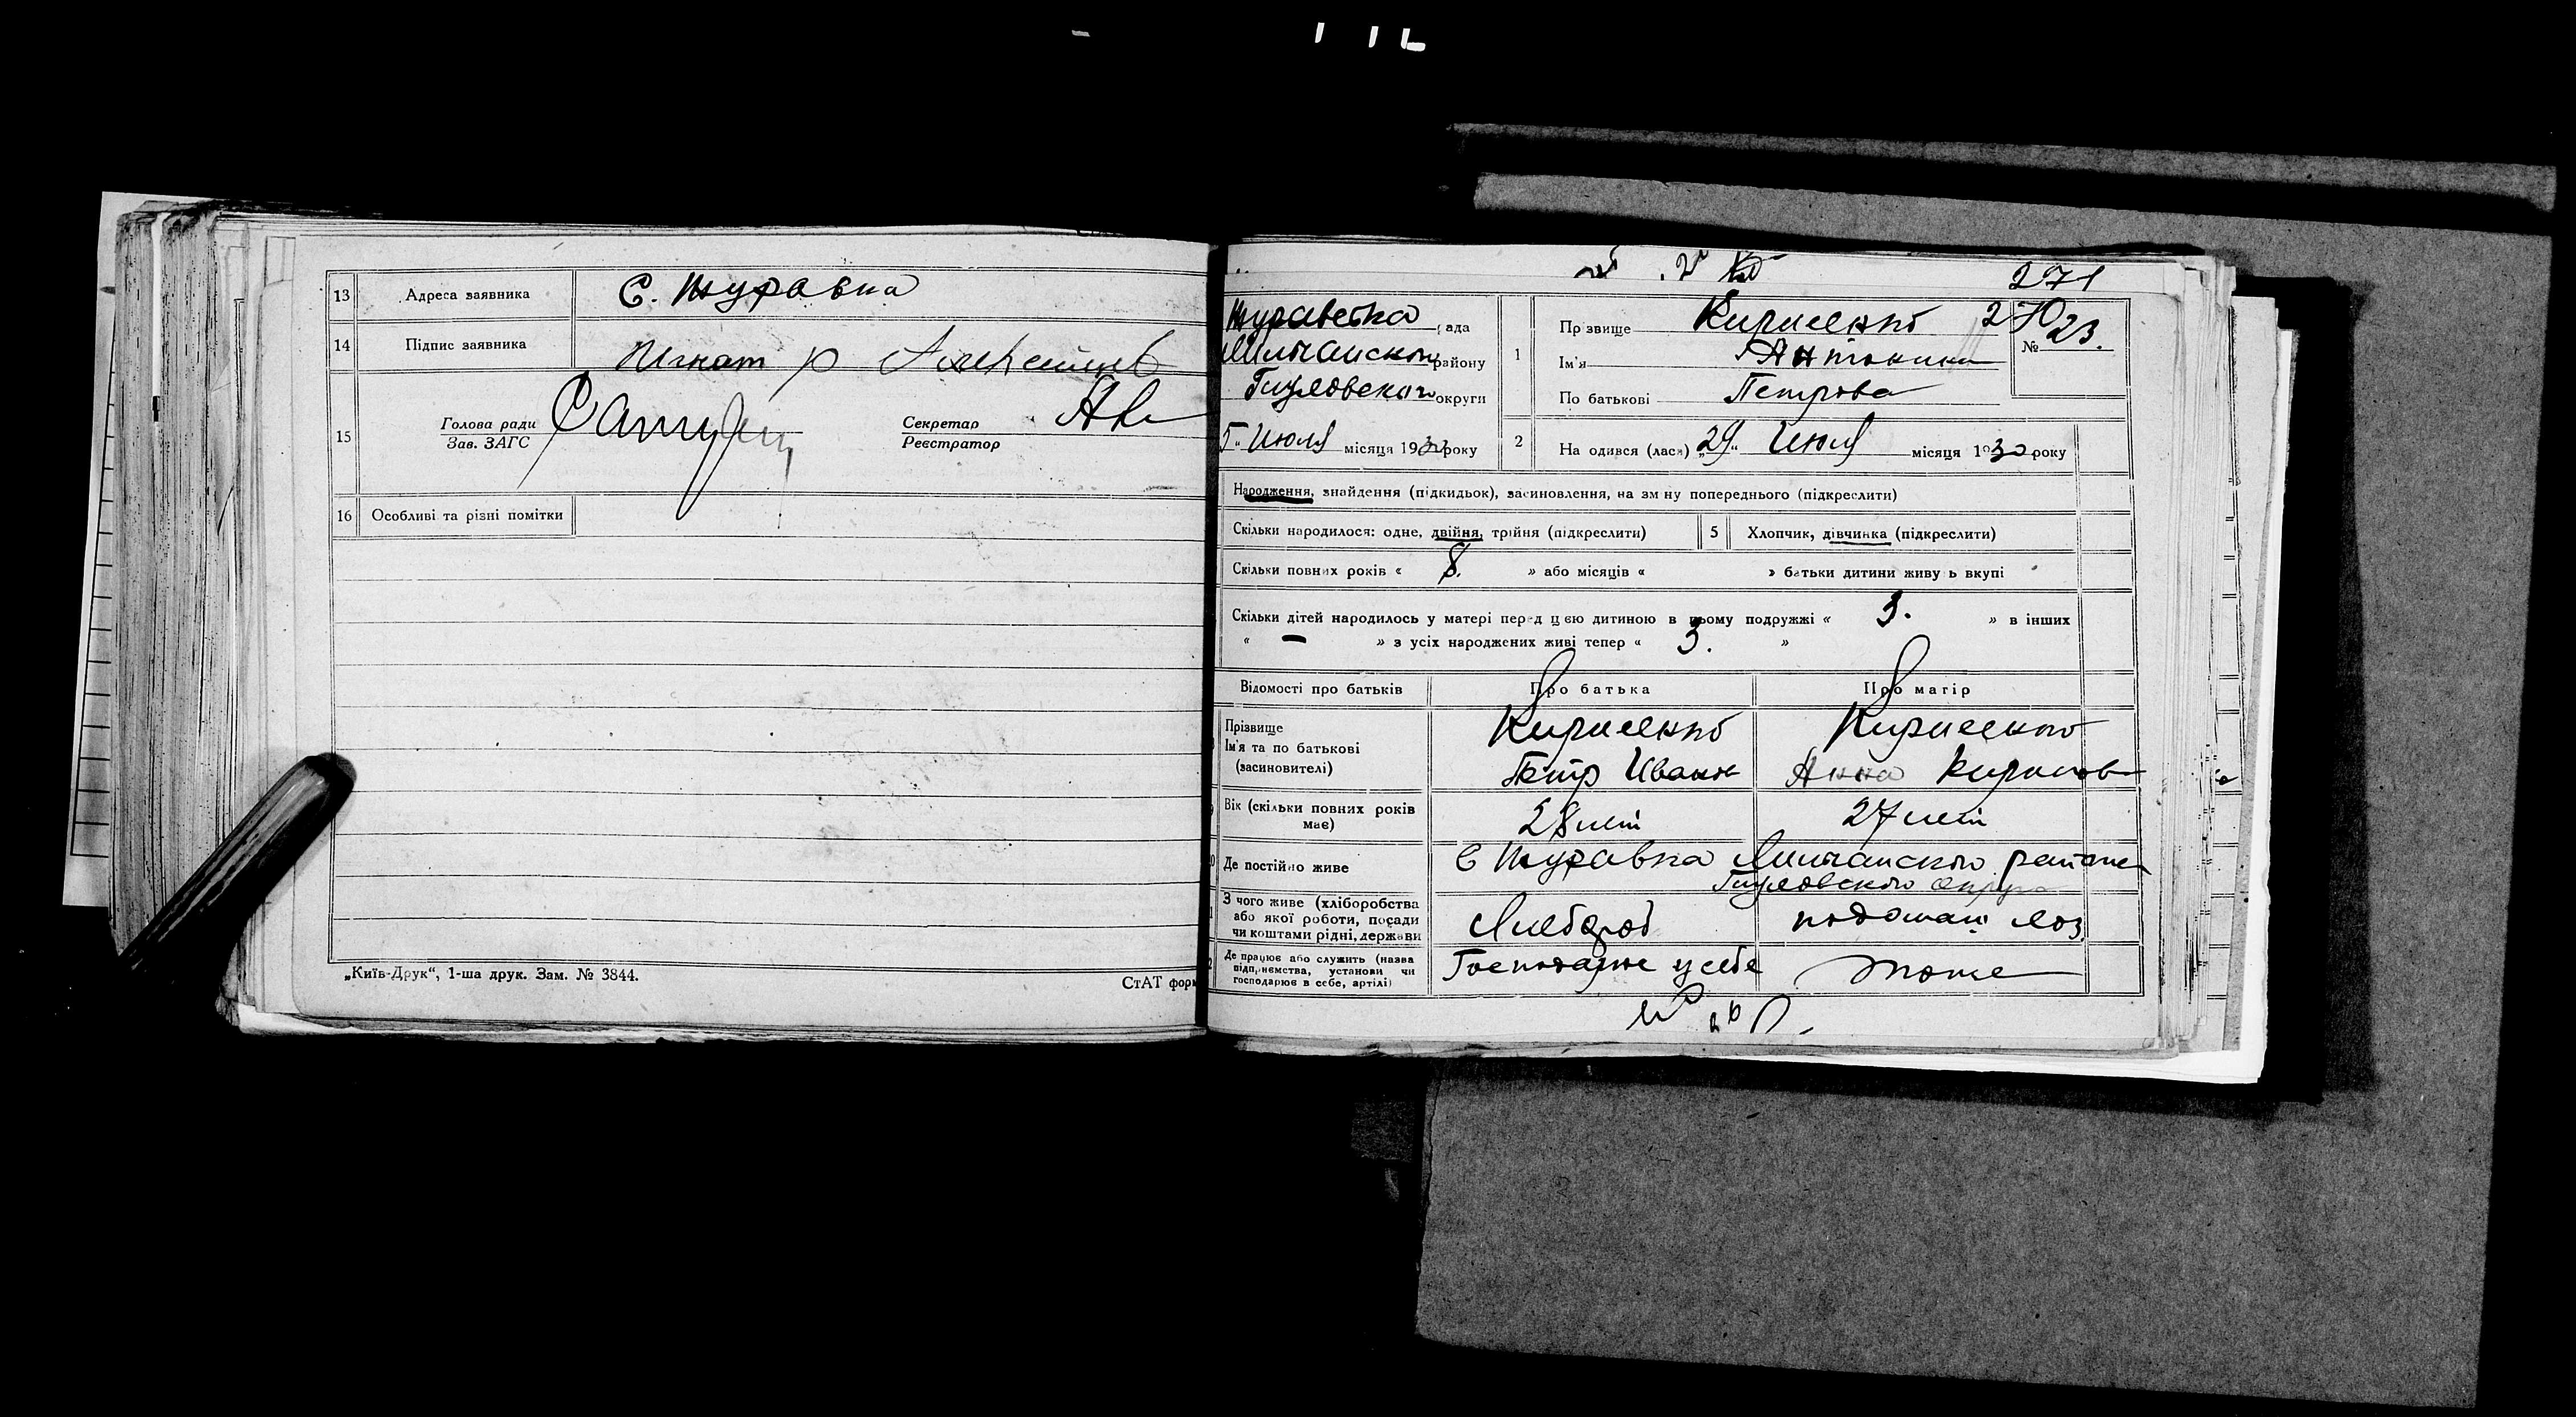 13 Адреса заявника С. Журавка
14 Підпис заявника Игнат
15 Голова ради
Зав. ЗАГС
Секретар
Реєстратор
16 Особливі та різні помітки
„Київ-Друк“, 1-ша друк. Зам. № 3844.
СтАТ форм
271
270
№ 23.
Журавска рада
району
округи
5 Июля місяця 1930 року
1 Прізвище Кириленко
Ім'я Антонина
По батькові Петрова
2 Народився (лася) „29“ Июня місяця 1930 року
Народження, знайдення (підкидьок), засиновлення, на зміну попереднього (підкреслити)
Скільки народилося: одне, двійня, трійня (підкреслити)
5 Хлопчик, дівчинка (підкреслити)
Скільки повних років « 8. » або місяців « » батьки дитини живуть вкупі
Скільки дітей народилось у матері перед цією дитиною в цьому подружжі « 3. » в інших
« — » з усіх народжених живі тепер « 3. »
Відомості про батьків Про батька Про матір
Прізвище Кириленко Кириленко
Ім'я та по батькові
(засиновителі) Петр Иванов Анна
Вік (скільки повних років
має) 28 лет 27 лет
Де постійно живе С Журавка района
З чого живе (хліборобства
або якої роботи, посади
чи коштами рідні, держави Хлебороб
Де працює або служить (назва
підприємства, установи чи
господарює в себе, артілі) Господарює у себе тоже